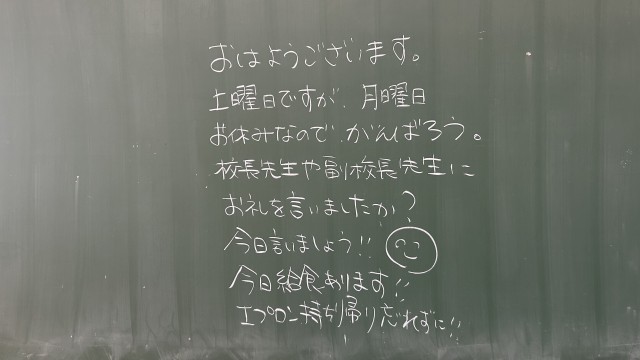 おはようございます。
土曜日ですが、月曜日
お休みなので、がんばろう。
校長先生や副校長先生に
お礼を言いましたか?
今日言いましょう!!
今日給食あります!!
エプロン持ち帰り忘れずに!!